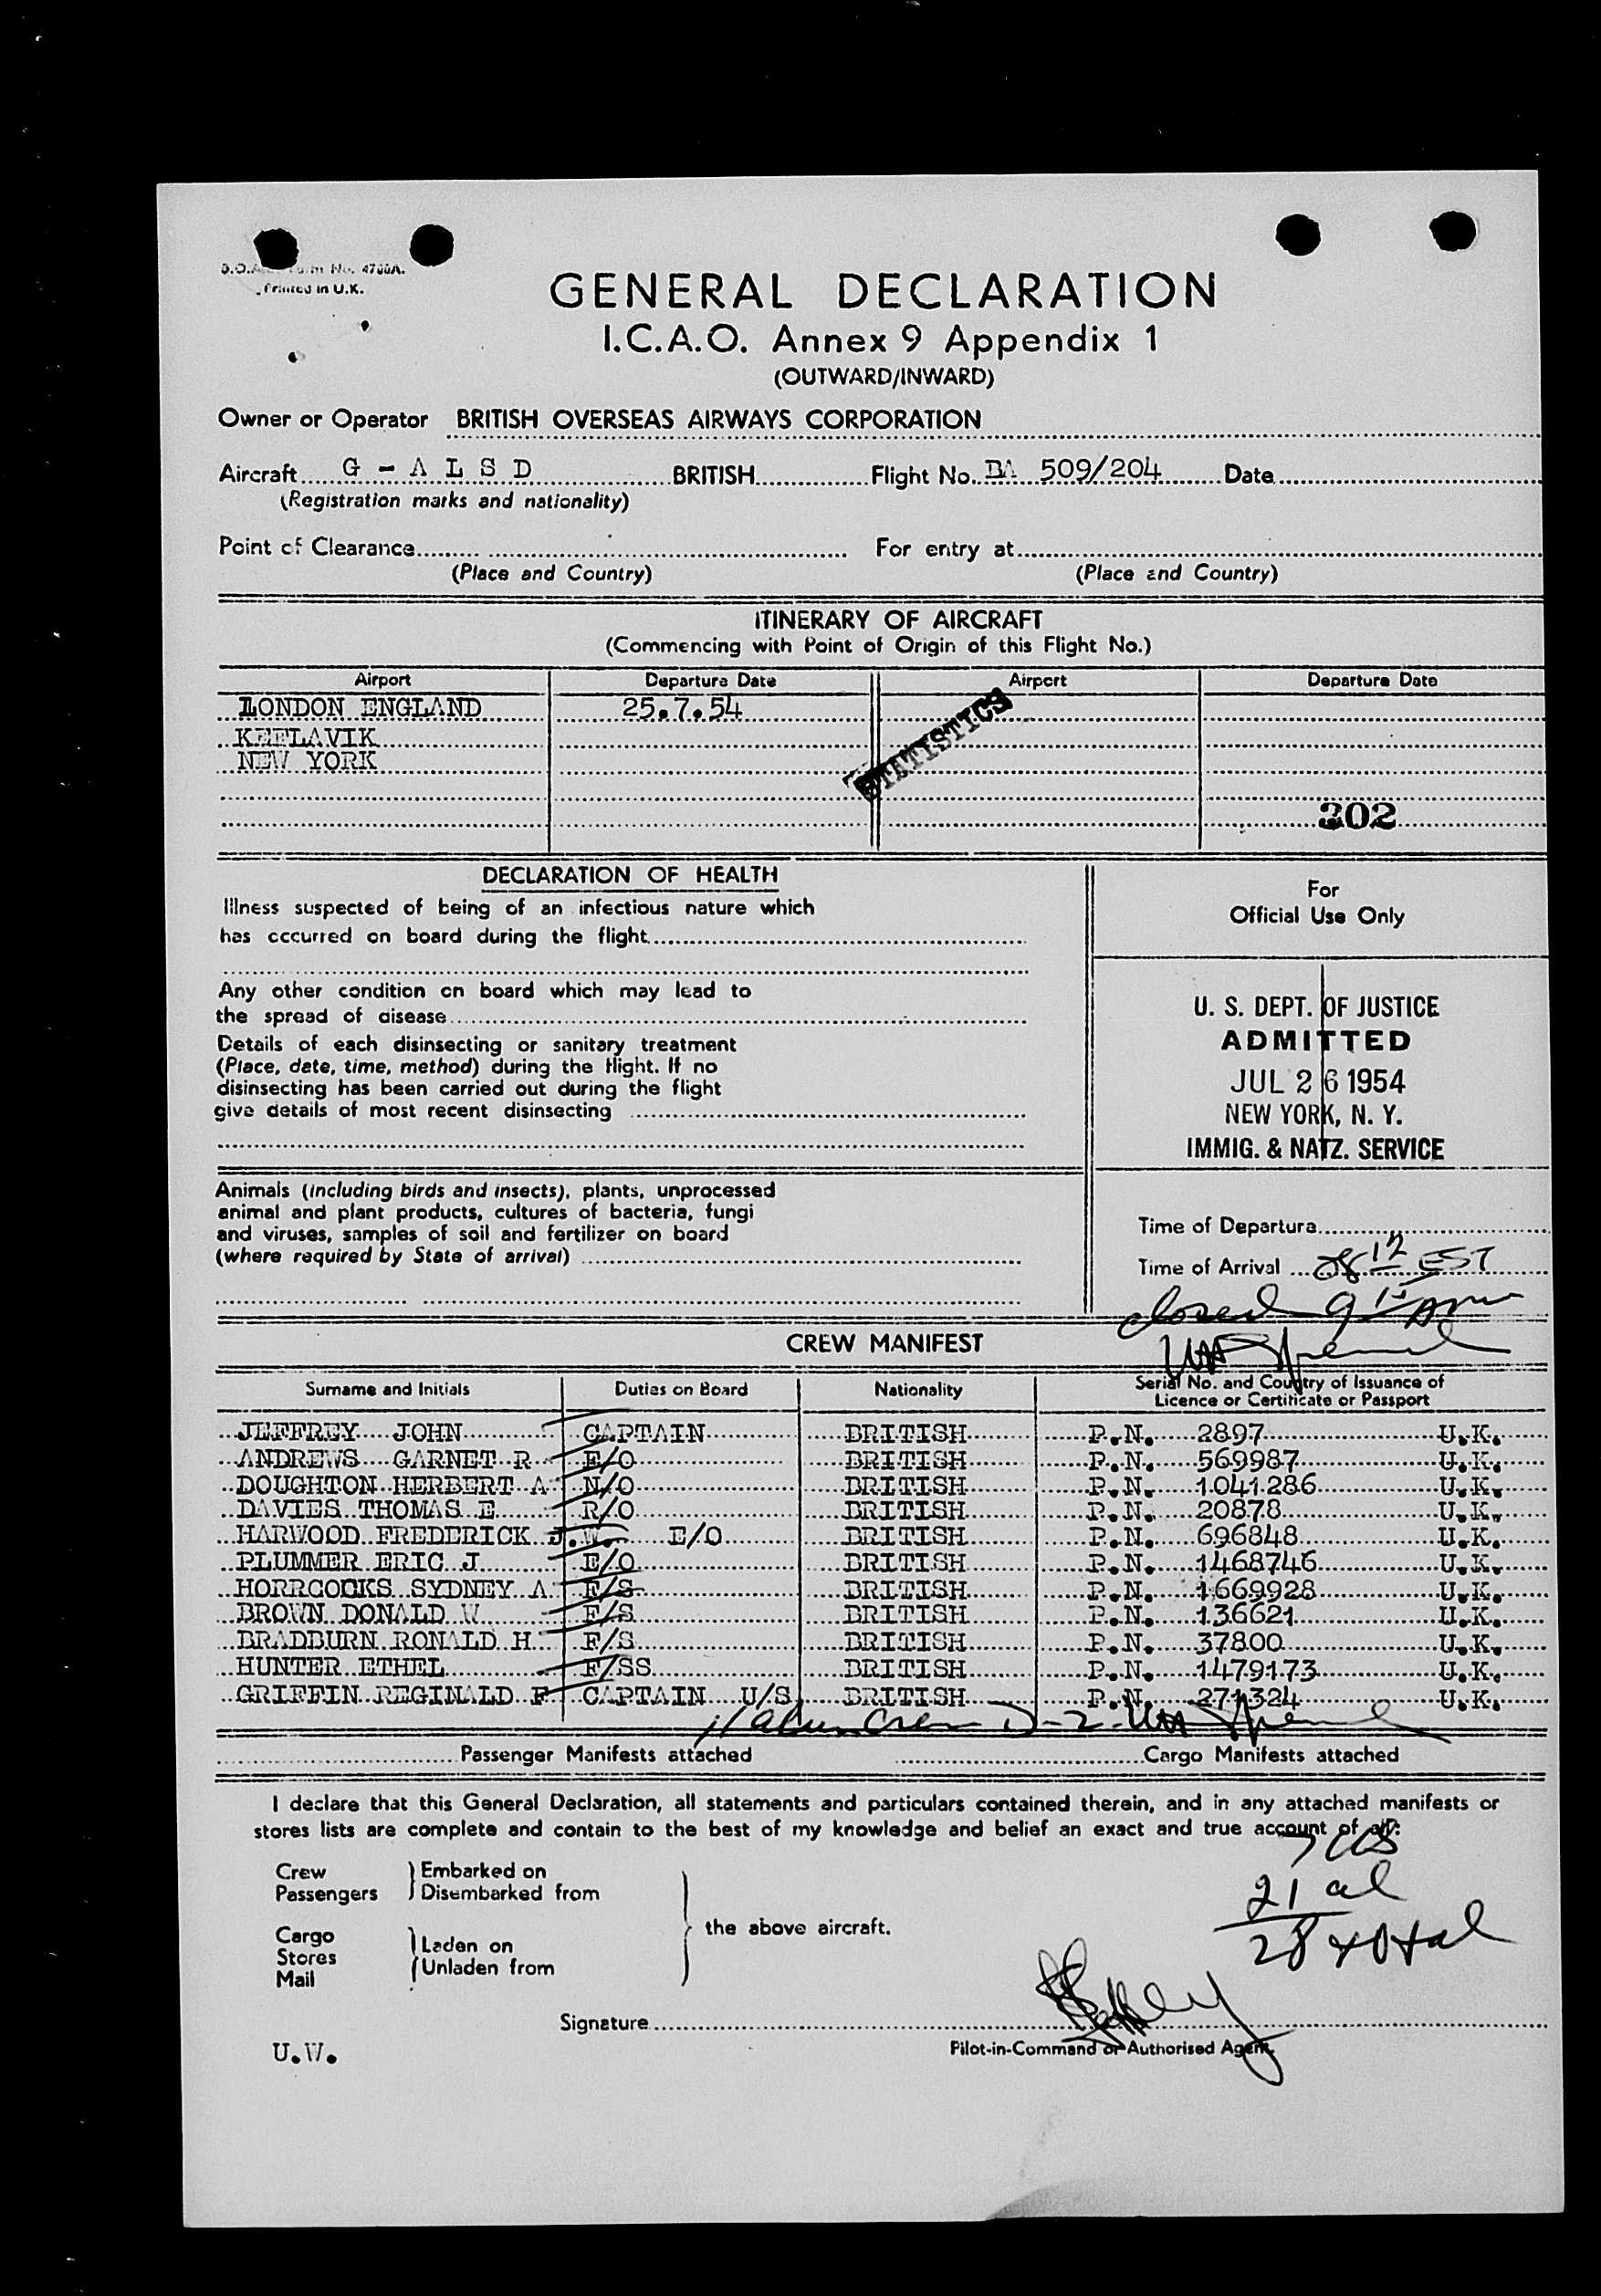 Form No. 4700A.
Printed in U.K.
GENERAL DECLARATION
I.C.A.O. Annex 9 Appendix 1
(OUTWARD/INWARD)
Owner or Operator BRITISH OVERSEAS AIRWAYS CORPORATION
Aircraft G - A L S D BRITISH Flight No. BA 509/204 Date
(Registration marks and nationality)
Point of Clearance For entry at
(Place and Country) (Place and Country)
ITINERARY OF AIRCRAFT
(Commencing with Point of Origin of this Flight No.)
Airport Departure Date Airport Departure Date
LONDON ENGLAND 25.7.54
KEFLAVIK
NEW YORK
STATISTICS
302
DECLARATION OF HEALTH
Illness suspected of being of an infectious nature which
has occurred on board during the flight
Any other condition on board which may lead to
the spread of disease
Details of each disinsecting or sanitary treatment
(Place, date, time, method) during the flight. If no
disinsecting has been carried out during the flight
give details of most recent disinsecting
For
Official Use Only
U. S. DEPT. OF JUSTICE
ADMITTED
JUL 26 1954
NEW YORK, N. Y.
IMMIG. & NATZ. SERVICE
Animals (including birds and insects), plants, unprocessed
animal and plant products, cultures of bacteria, fungi
and viruses, samples of soil and fertilizer on board
(where required by State of arrival)
Time of Departure
Time of Arrival 08 12 EST
closed 9 15 AM
CREW MANIFEST
Surname and Initials Duties on Board Nationality Serial No. and Country of Issuance of
Licence or Certificate or Passport
JEFFREY JOHN CAPTAIN BRITISH P.N. 2897 U.K.
ANDREWS GARNET R F/O BRITISH P.N. 569987 U.K.
DOUGHTON HERBERT A N/O BRITISH P.N. 1041286 U.K.
DAVIES THOMAS E R/O BRITISH P.N. 20878 U.K.
HARWOOD FREDERICK J.W. E/O BRITISH P.N. 696848 U.K.
PLUMMER ERIC J E/O BRITISH P.N. 1468746 U.K.
HORRCOCKS SYDNEY A F/S BRITISH P.N. 1669928 U.K.
BROWN DONALD W F/S BRITISH P.N. 136621 U.K.
BRADBURN RONALD H F/S BRITISH P.N. 37800 U.K.
HUNTER ETHEL F/SS BRITISH P.N. 1479173 U.K.
GRIFFIN REGINALD F CAPTAIN U/S BRITISH P.N. 271324 U.K.
11 alien crew D-2
Passenger Manifests attached Cargo Manifests attached
I declare that this General Declaration, all statements and particulars contained therein, and in any attached manifests or
stores lists are complete and contain to the best of my knowledge and belief an exact and true account of all:
7 US
21 al
28 total
Crew Embarked on
Passengers Disembarked from
the above aircraft.
Cargo
Stores Laden on
Mail Unladen from
Signature
Pilot-in-Command or Authorised Agent.
U.W.